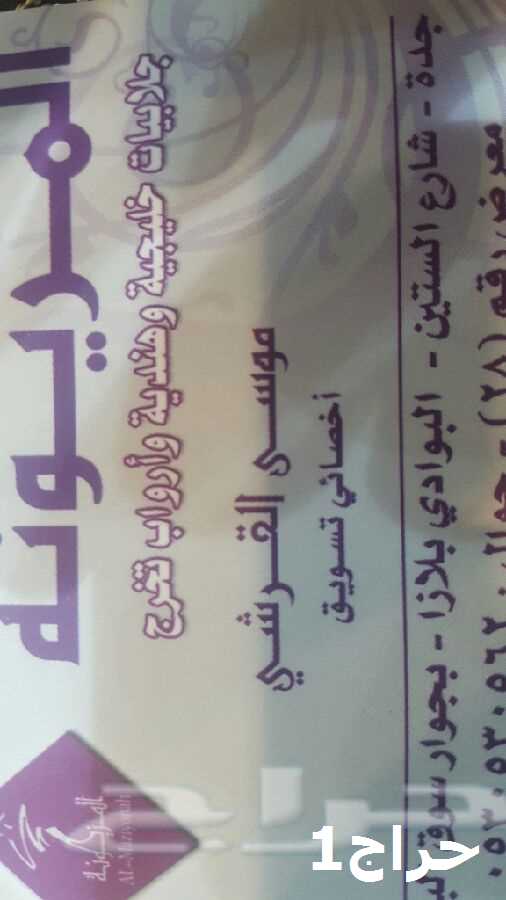 المريونه
جلابيات خليجية وهندية وأرواب تخرج
موسى القرشي
أخصائي تسويق
جدة - شارع الستين - البوادي بلازا - بجوار سوق
معرض رقم (٧٢) - جوال
المريونة
AL-Maryonah
حراج1